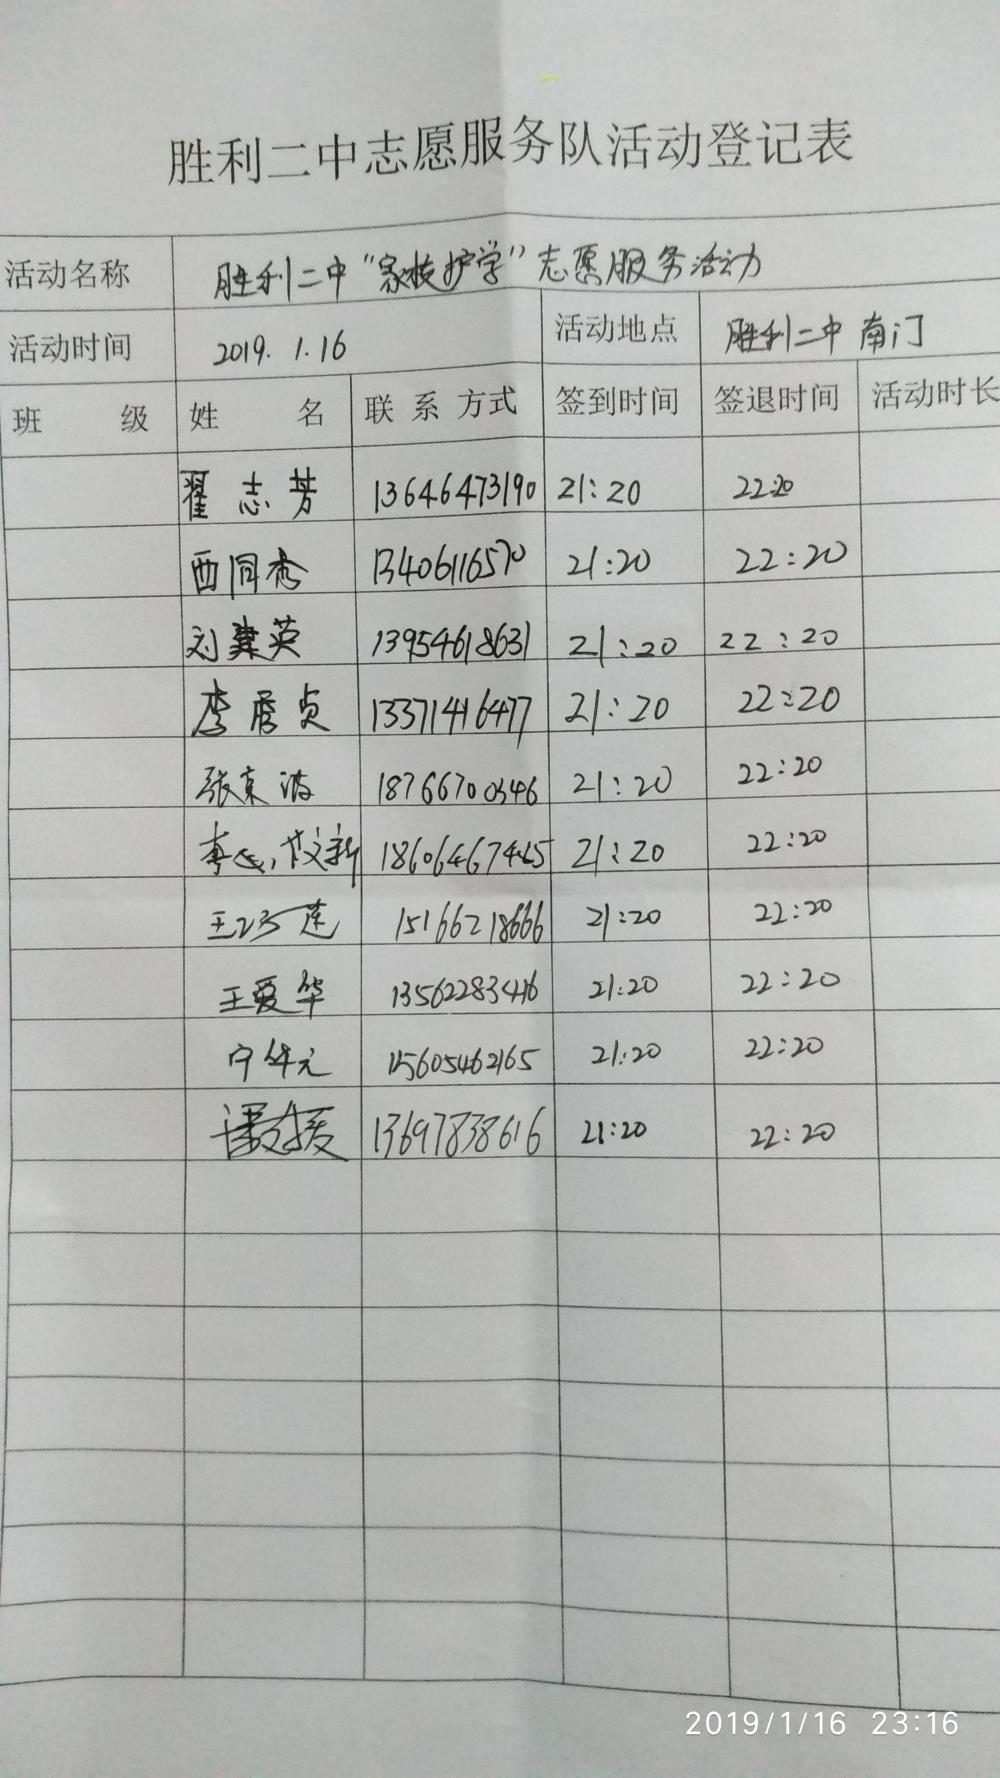 胜利二中志愿服务队活动登记表
活动名称 胜利二中“家校护学”志愿服务活动
活动时间 2019.1.16 活动地点 胜利二中南门
班 级 姓 名 联系方式 签到时间 签退时间 活动时长
翟志芳 13646473190 21:20 22:20
西同秀 13406116570 21:20 22:20
刘建英 13954618631 21:20 22:20
李秀贞 13371416477 21:20 22:20
张京波 18766700346 21:20 22:20
21:20 22:20
王 莲 15166218666 21:20 22:20
王爱华 13562283416 21:20 22:20
宁华元 15605462165 21:20 22:20
13697838616 21:20 22:20
2019/1/16 23:16